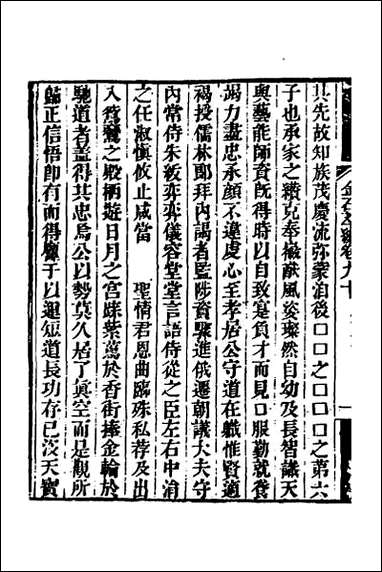 其先故知族茂慶流弥蒙洎後口口之口口口之第六
子也承家之積克奉徽猷風姿璨然自幼及長智識天
與藝能師資旣得時以自致是負才而見口服勤就養
竭力盡忠承顔不違虔心至孝居公守道在軄惟賢適
褐投儒林郎拜內謁者監陟資驟進俄遷朝議大夫守
內常侍朱紱弈弈儀容堂堂言語侍從之臣左右中涓
之任淑愼攸止咸當 聖情君恩曲臨殊私荐及出
入鴛鸞之殿栖遊日月之宮蹀紫薦於香街捧金輪於
馳道者蓋得其忠焉公以勢莫久居了眞空而是觀所
歸正信悟卽有而得釁于以遐短道長功存已沒天寶
金石萃編卷九十
一